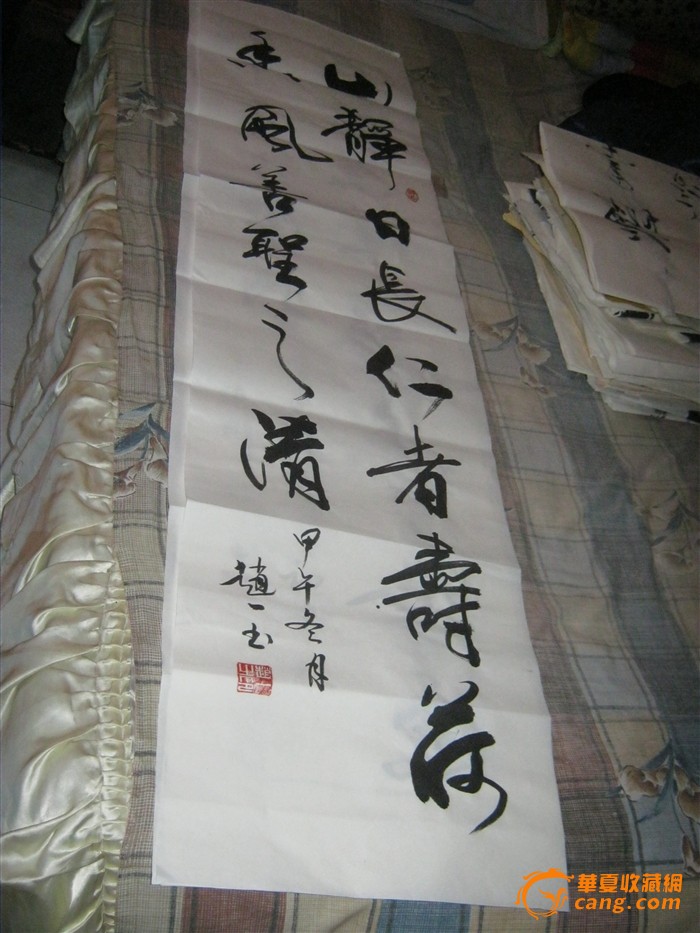 山靜日長仁者壽荷
香風善聖之清
甲午冬月
趙一玉
華夏收藏網
cang.com